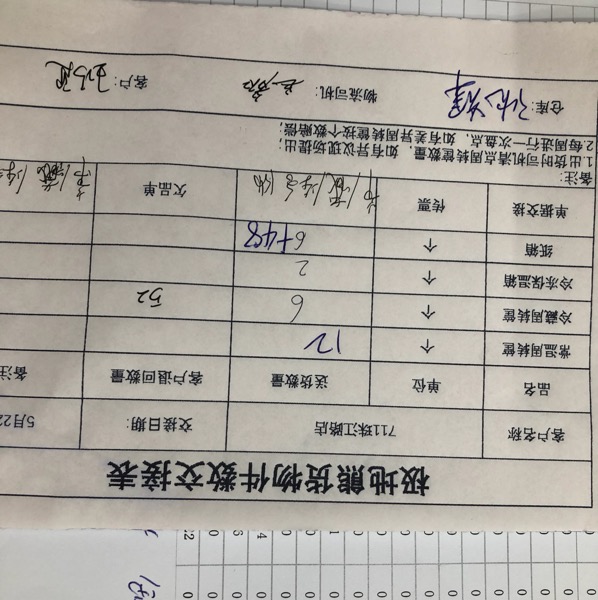 极地熊货物件数交接表
客户名称 711珠江路店 交接日期: 5月22
品名 单位 送货数量 客户退回数量 备注
常温周转筐 个 12
冷藏周转筐 个 6 52
冷冻保温箱 个 2
纸箱 个 6+48
单据交接 传票 欠品单
备注:
1.出货时司机清点周转筐数量,如有异议现场提出;
2.每周进行一次盘点,如有差异周转筐按个数赔偿;
仓库: 物流司机: 客户:
22 0 3 4 0 1 0 0 0 0 0 0 0 0 0 0